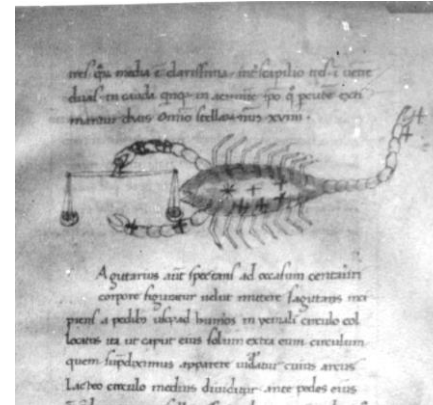 tres. q̃a media ē clarissima. in scapilio tres. i uentre
duas. in cauda qnq. in acumine ipo q̃ pcute exti
mantur duas Omĩo stellaꝝ nũs xviiii.
Agutarius aũt spectans ad occasum centauri
corpore figuratur uelut mittere sagittans inci
piens a pedib; usq; ad humeros in yemali circulo col
locatus ita ut caput eius solum extra eum circulum
quem supdiximus apparere uideatur cuius arcus
Lacteo circulo medius diuiditur. ante pedes eius